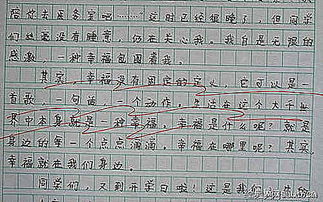 陪你去医务室吧……这时已经很晚了，但同学
们丝毫没有睡意，仍在关心我。我自是无限的
感激，一种幸福包围着我。
其实，幸福没有固定的定义，它可以是一
首歌、一句话、一个动作，生活在这个大千世
其中本身就是一种幸福，幸福是什么呢？就是
身边的每一个点点滴滴，幸福在哪里呢？其实
幸福就在我们身边。
同学们，又到开学日啦！这是我们